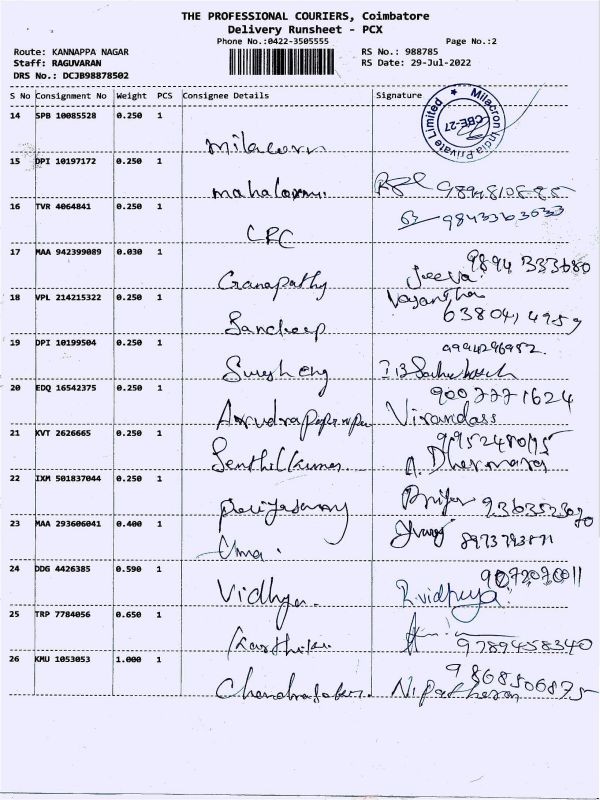 THE PROFESSIONAL COURIERS, Coimbatore
Delivery Runsheet - PCX
Phone No.:0422-3505555 Page No.:2
Route: KANNAPPA NAGAR RS No.: 988785
Staff: RAGUVARAN RS Date: 29-Jul-2022
DRS No.: DCJB98878502
S No Consignment No Weight PCS Consignee Details Signature
14 SPB 10085528 0.250 1
Milacron India Private Limited CBE-27
milacron
15 DPI 10197172 0.250 1
mahalaxmi
16 TVR 4064841 0.250 1
CRC
17 MAA 942399089 0.030 1
Ganapathy Jeeva 9894 333680
18 VPL 214215322 0.250 1
Sandeep 63804, 4959
19 DPI 10199504 0.250 1
Suresh eng 9994296982
20 EDQ 16542375 0.250 1
9007771624
21 KVT 2626665 0.250 1
Senthil Kumar
22 IXM 501837044 0.250 1
Periyasamy
23 MAA 293606041 0.400 1
Uma
24 DDG 4426385 0.590 1
Vidhya R.vidhya
25 TRP 7784056 0.650 1
9789458340
26 KMU 1053053 1.000 1
9868506875